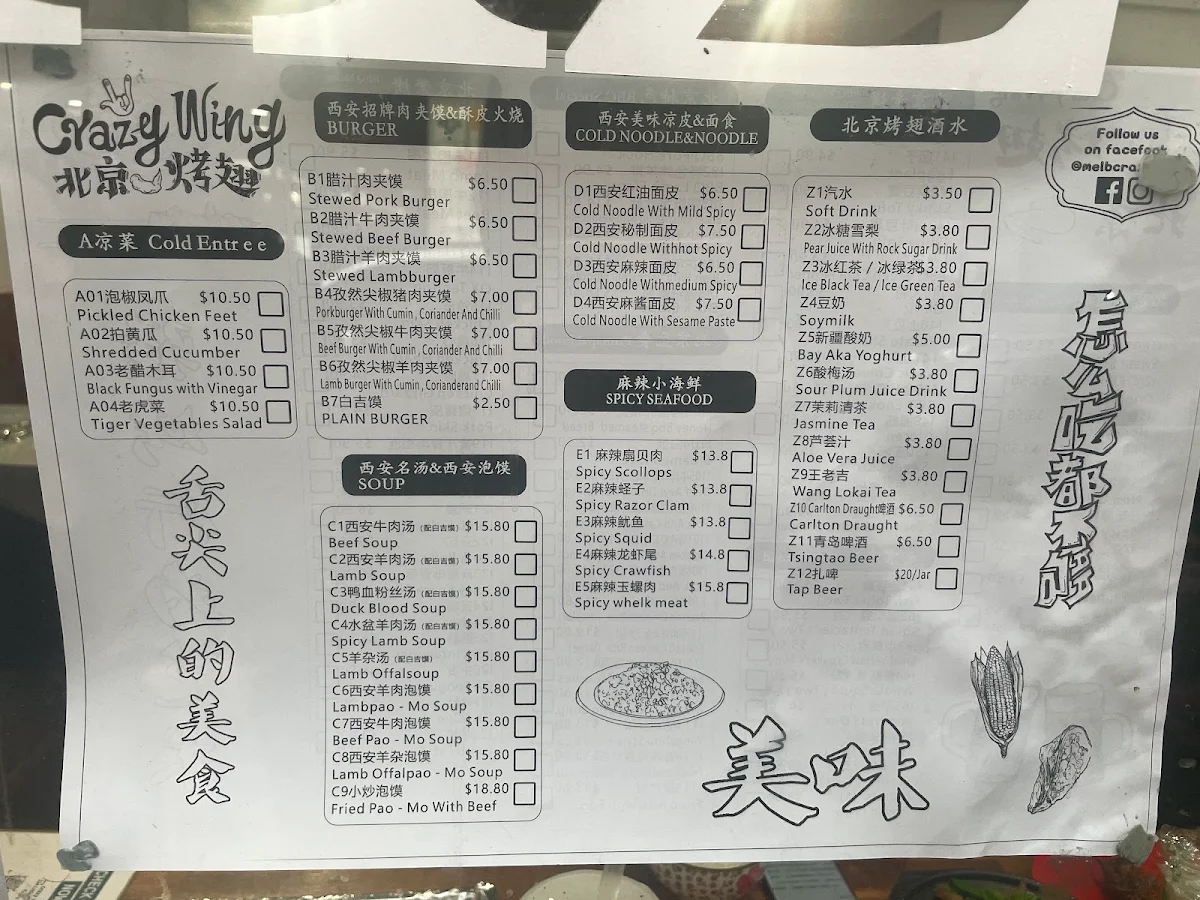 Crazy Wing
北京烤翅
A凉菜 Cold Entree
A01泡椒凤爪 $10.50
Pickled Chicken Feet
A02拍黄瓜 $10.50
Shredded Cucumber
A03老醋木耳 $10.50
Black Fungus with Vinegar
A04老虎菜 $10.50
Tiger Vegetables Salad
舌尖上的美食
西安招牌肉夹馍&酥皮火烧
BURGER
B1腊汁肉夹馍 $6.50
Stewed Pork Burger
B2腊汁牛肉夹馍 $6.50
Stewed Beef Burger
B3腊汁羊肉夹馍 $6.50
Stewed Lambburger
B4孜然尖椒猪肉夹馍 $7.00
Porkburger With Cumin , Coriander And Chilli
B5孜然尖椒牛肉夹馍 $7.00
Beef Burger With Cumin , Coriander And Chilli
B6孜然尖椒羊肉夹馍 $7.00
Lamb Burger With Cumin , Corianderand Chilli
B7白吉馍 $2.50
PLAIN BURGER
西安名汤&西安泡馍
SOUP
C1西安牛肉汤 (配白吉馍) $15.80
Beef Soup
C2西安羊肉汤 (配白吉馍) $15.80
Lamb Soup
C3鸭血粉丝汤 (配白吉馍) $15.80
Duck Blood Soup
C4水盆羊肉汤 (配白吉馍) $15.80
Spicy Lamb Soup
C5羊杂汤 (配白吉馍) $15.80
Lamb Offalsoup
C6西安羊肉泡馍 $15.80
Lambpao - Mo Soup
C7西安牛肉泡馍 $15.80
Beef Pao - Mo Soup
C8西安羊杂泡馍 $15.80
Lamb Offalpao - Mo Soup
C9小炒泡馍 $18.80
Fried Pao - Mo With Beef
西安美味凉皮&面食
COLD NOODLE&NOODLE
D1西安红油面皮 $6.50
Cold Noodle With Mild Spicy
D2西安秘制面皮 $7.50
Cold Noodle Withhot Spicy
D3西安麻辣面皮 $6.50
Cold Noodle Withmedium Spicy
D4西安麻酱面皮 $7.50
Cold Noodle With Sesame Paste
麻辣小海鲜
SPICY SEAFOOD
E1 麻辣扇贝肉 $13.8
Spicy Scollops
E2麻辣蛏子 $13.8
Spicy Razor Clam
E3麻辣鱿鱼 $13.8
Spicy Squid
E4麻辣龙虾尾 $14.8
Spicy Crawfish
E5麻辣玉螺肉 $15.8
Spicy whelk meat
北京烤翅酒水
Z1汽水 $3.50
Soft Drink
Z2冰糖雪梨 $3.80
Pear Juice With Rock Sugar Drink
Z3冰红茶 / 冰绿茶$3.80
Ice Black Tea / Ice Green Tea
Z4豆奶 $3.80
Soymilk
Z5新疆酸奶 $5.00
Bay Aka Yoghurt
Z6酸梅汤 $3.80
Sour Plum Juice Drink
Z7茉莉清茶 $3.80
Jasmine Tea
Z8芦荟汁 $3.80
Aloe Vera Juice
Z9王老吉 $3.80
Wang Lokai Tea
Z10 Carlton Draught啤酒 $6.50
Carlton Draught
Z11青岛啤酒 $6.50
Tsingtao Beer
Z12扎啤 $20/Jar
Tap Beer
Follow us
on facefook
@melbcra
怎么吃都不腻
美味